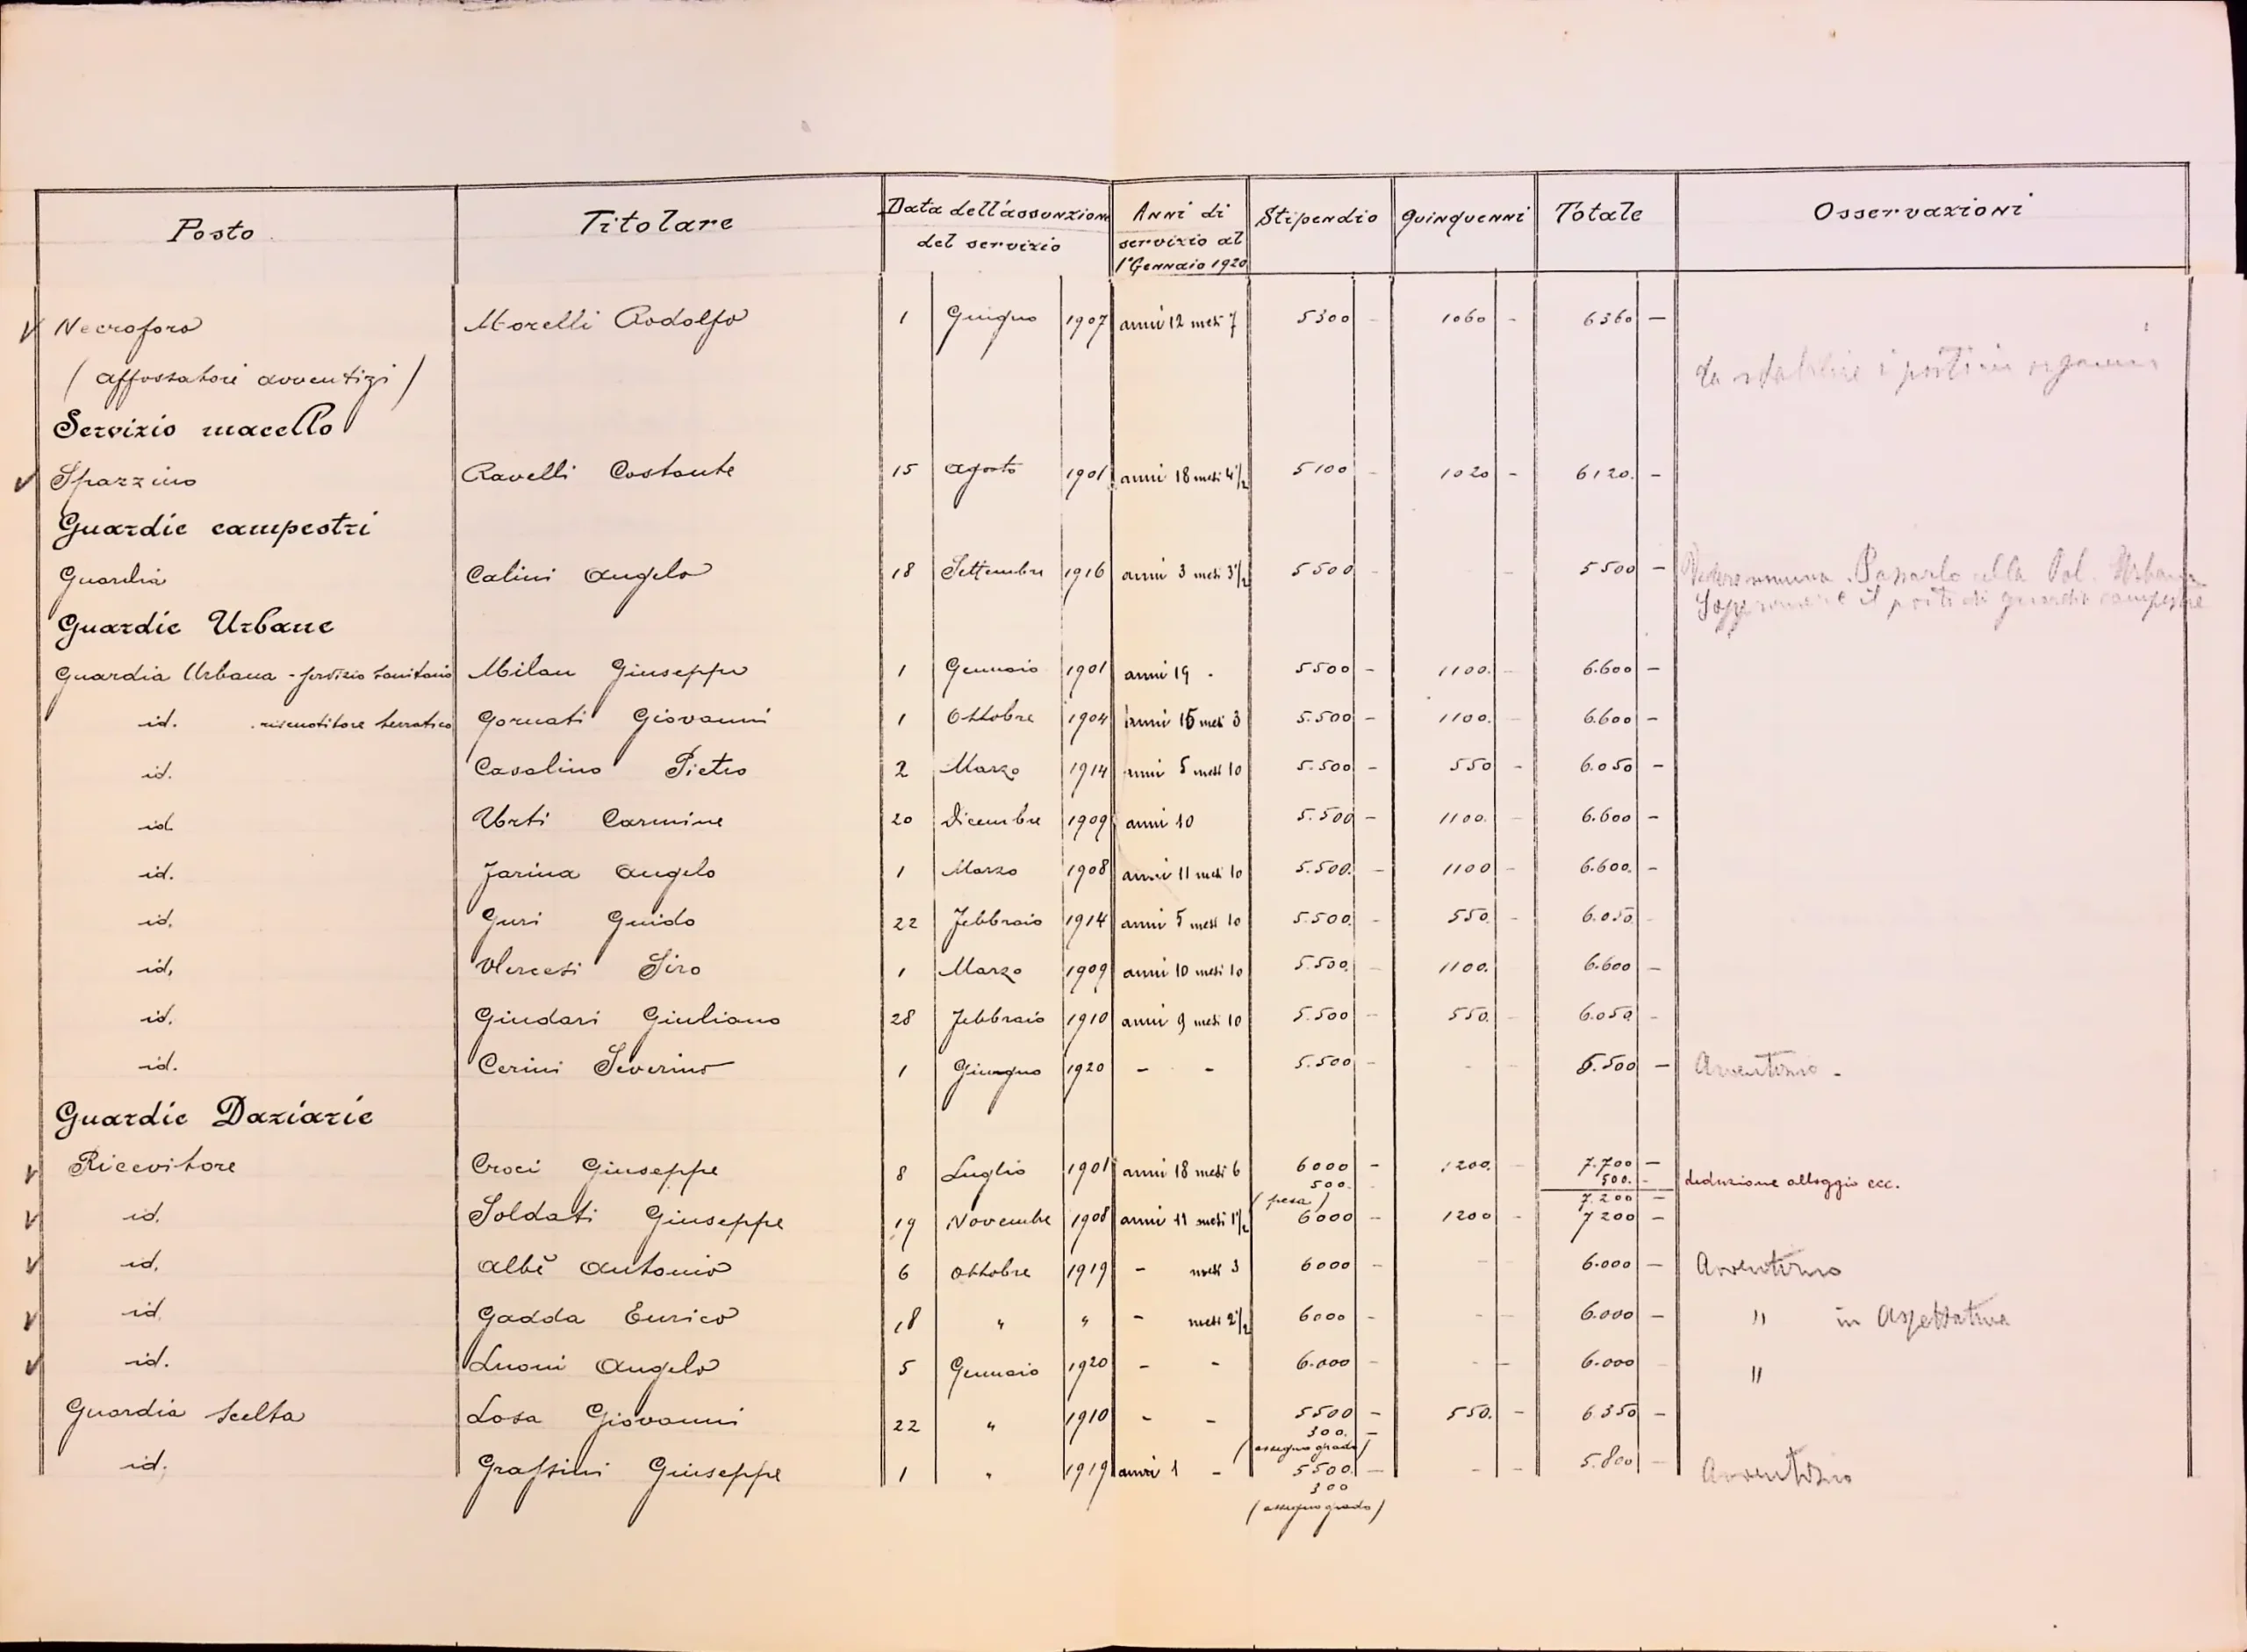 Posto Titolare Data dell'assunzione del servizio Anni di servizio al 1° Gennaio 1920 Stipendio Quinquenni Totale Osservazioni
Necroforo Morelli Rodolfo 1 Giugno 1907 anni 12 mesi 7 5300 - 1060 - 6360 -
(affossatori avventizi) da stabilire i posti in organico
Servizio macello
Spazzino Ravelli Costante 15 Agosto 1901 anni 18 mesi 4 1/2 5100 - 1020 - 6120. -
Guardie campestri
Guardia Calini Angelo 18 Settembre 1916 anni 3 mesi 3 1/2 5500 - - - 5500 - Passarlo alla Pol. Urbana
Sopprimere il posto di guardia campestre
Guardie Urbane
Guardia Urbana - servizio sanitario Milan Giuseppe 1 Gennaio 1901 anni 19 - 5500 - 1100. - 6.600 -
id. riscuotitore Gornati Giovanni 1 Ottobre 1904 anni 15 mesi 3 5.500 - 1100. - 6.600 -
id. Casalino Pietro 2 Marzo 1914 anni 5 mesi 10 5.500 - 550 - 6.050 -
id. Urti Carmine 20 Dicembre 1909 anni 10 5.500 - 1100. - 6.600 -
id. Farina Angelo 1 Marzo 1908 anni 11 mesi 10 5.500. - 1100 - 6.600. -
id. Guri Guido 22 Febbraio 1914 anni 5 mesi 10 5.500. - 550. - 6.050 -
id. Vercesi Siro 1 Marzo 1909 anni 10 mesi 10 5.500. - 1100. 6.600 -
id. Giudari Giuliano 28 Febbraio 1910 anni 9 mesi 10 5.500 - 550. - 6.050 -
id. Cerini Severino 1 Giungno 1920 - - 5.500 - - - 5.500 - Avventizio -
Guardie Daziarie
Ricevitore Croci Giuseppe 8 Luglio 1901 anni 18 mesi 6 6000 - 1200. - 7.700 -
500. - 500. - deduzione alloggio ecc.
(pesa) 7.200 -
id. Soldati Giuseppe 19 Novembre 1908 anni 11 mesi 1 1/2 6000 - 1200 - 7200 -
id. Albè Antonio 6 Ottobre 1919 - mesi 3 6000 - - - 6.000 - Avventizio
id. Gadda Enrico 18 " " - mesi 2 1/2 6000 - - - 6.000 - " in Aspettativa
id. Luoni Angelo 5 Gennaio 1920 - - 6.000 - - - 6.000 - "
Guardia scelta Losa Giovanni 22 " 1910 - - 5500 - 550. - 6350 -
300. -
(assegno grado)
id. Grassini Giuseppe 1 " 1919 anni 1 - 5500. - - - 5.800 - Avventizio
300
(assegno grado)